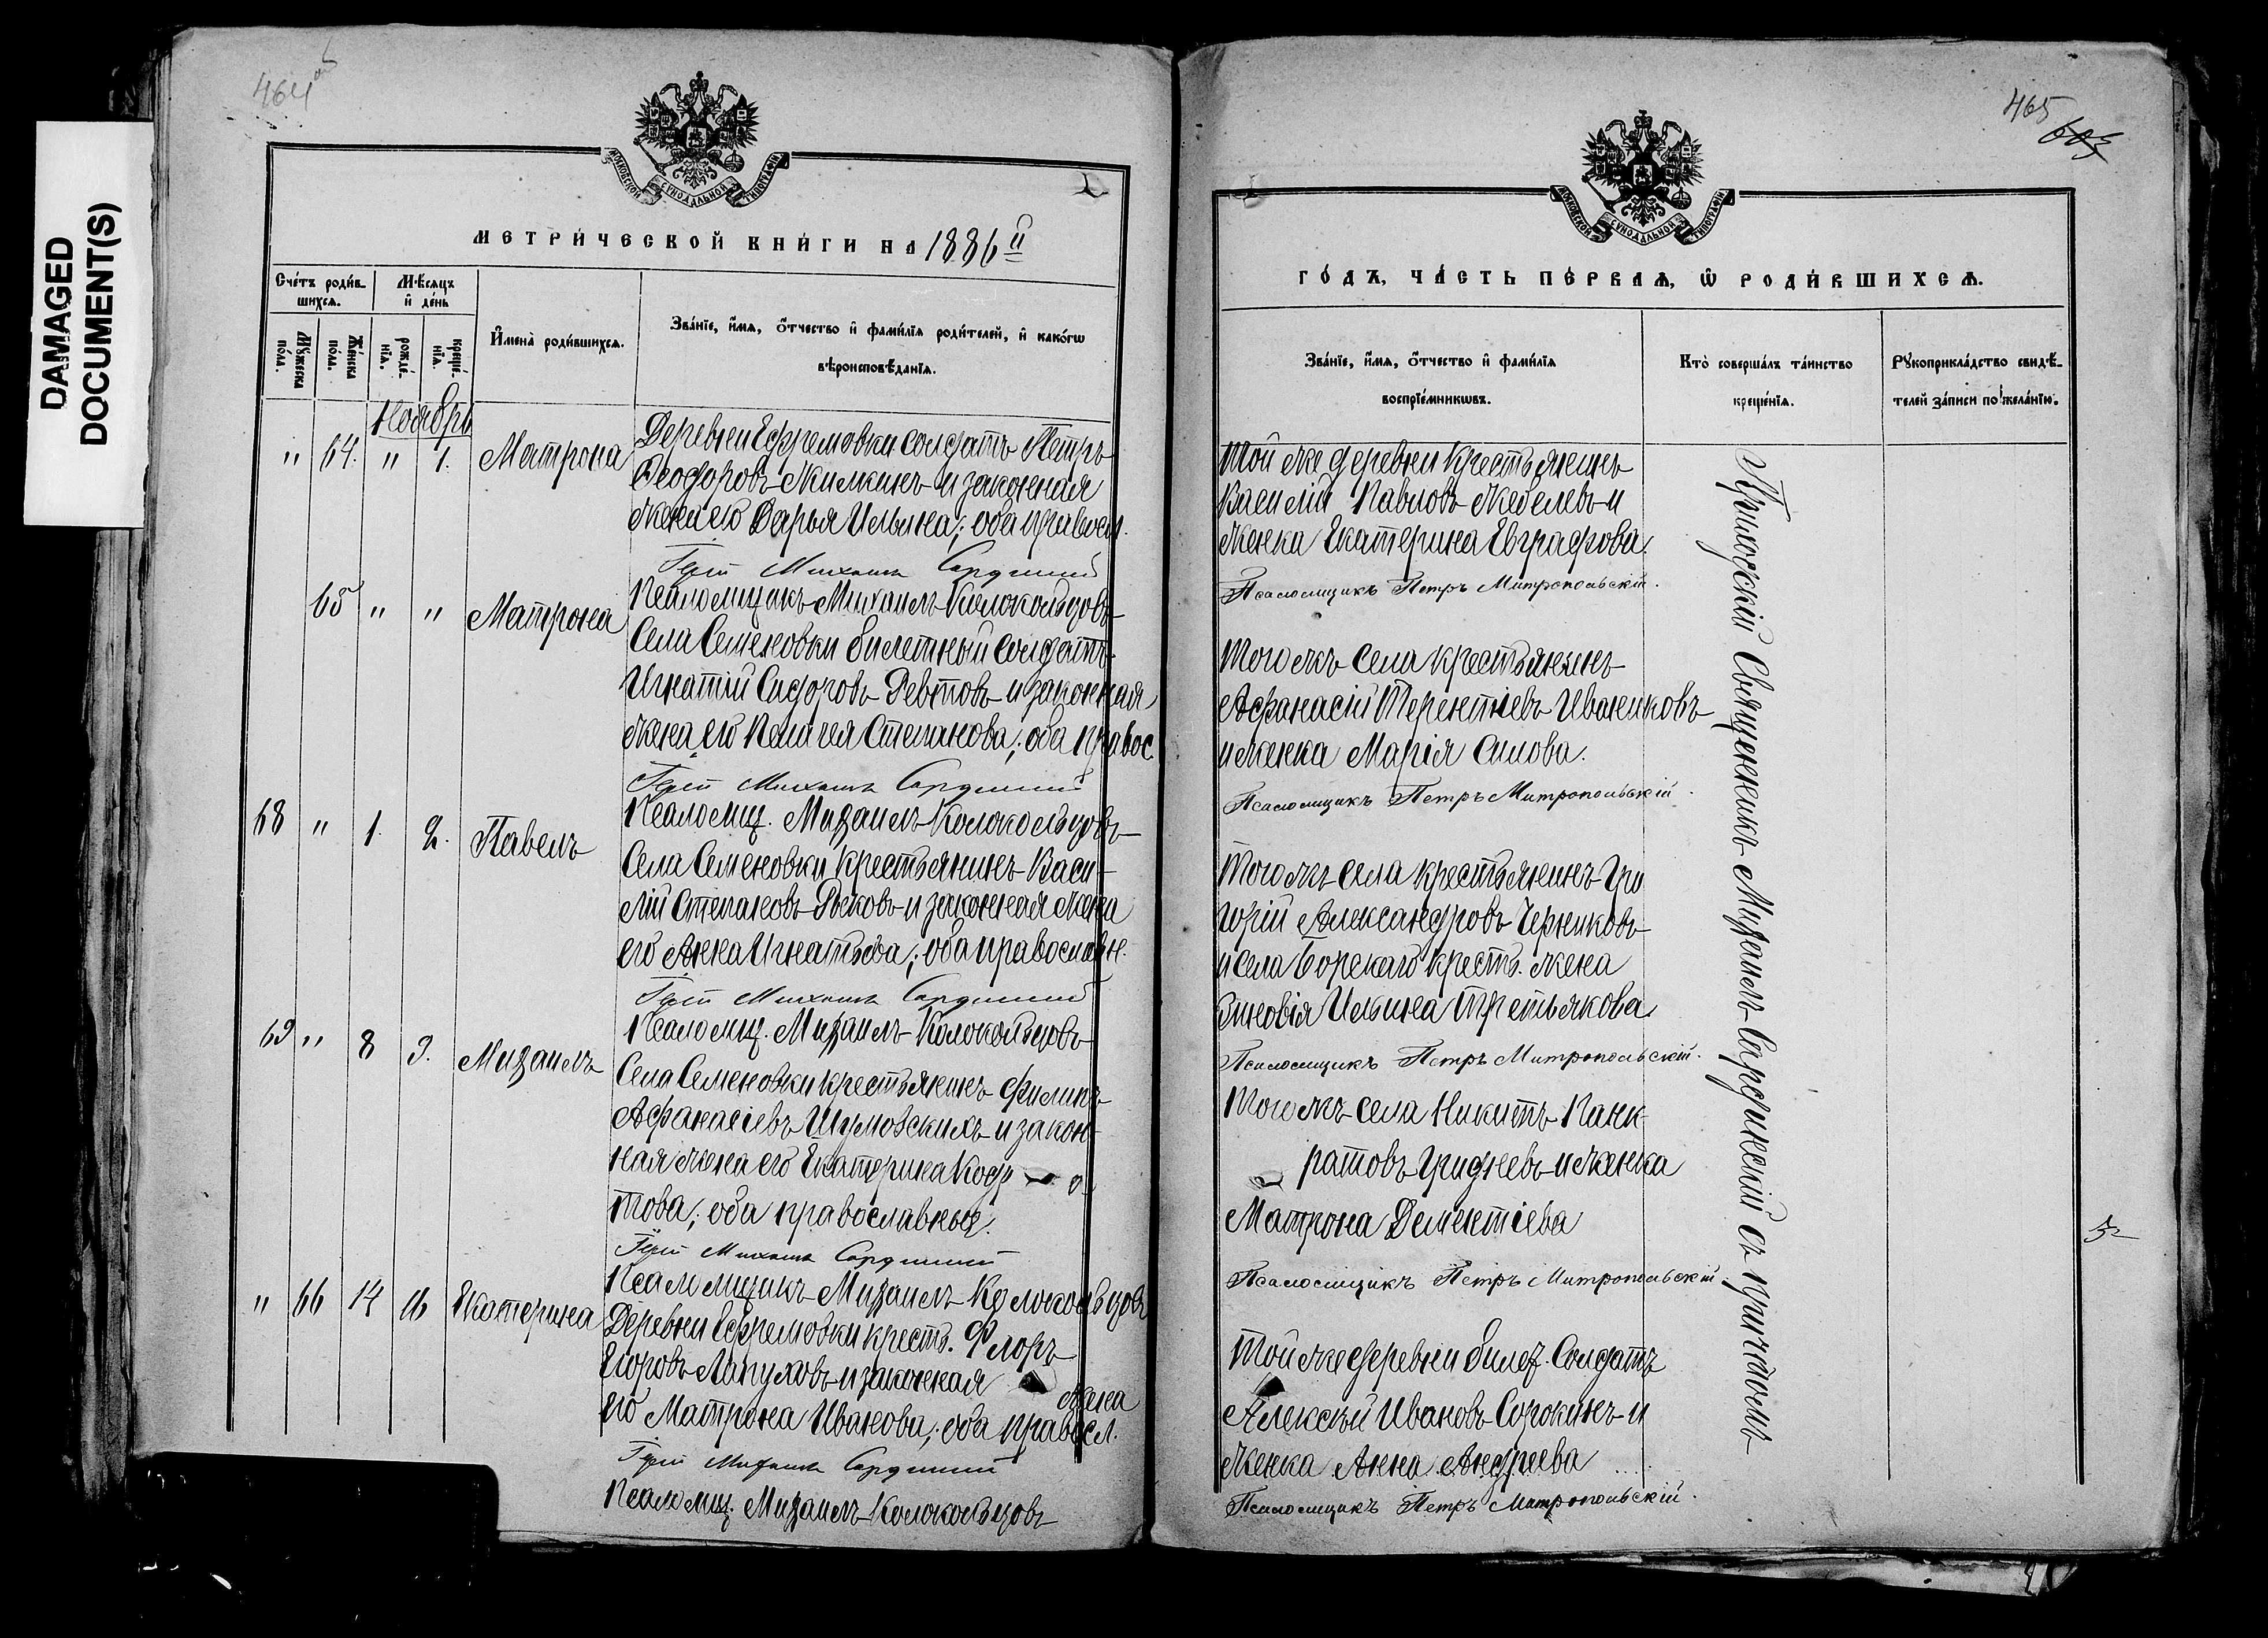 DAMAGED
DOCUMENT(S)
464 об
МОСКОВСКОЙ СѴНОДАЛЬНОЙ ТИПОГРАФІИ
МЕТРИ́ЧЕСКОЙ КНИ́ГИ НА 1886 й
Сче́тъ роди́в-
шихсѧ.
Мѣ́сѧцъ
и҆ де́нь
Мꙋ́жеска
по́ла.
Же́нска
по́ла.
рожде́-
нїѧ.
креще́-
нїѧ.
И҆мена̀ роди́вшихсѧ.
Зва́нїе, и҆́мѧ, ѻ҆́тчество и҆ фами́лїѧ роди́телей, и҆ како́гѡ
вѣроисповѣ́данїѧ.
Ноябрь
" 64. " 1. Матрона
Деревни Ефремовки солдатъ Петръ
Ѳеодоровъ Жилкинъ и законная
жена его Дарья Ильина; оба правосл.
Іерей Михаилъ Сардинскій
Псаломщикъ Михаилъ Колокольцовъ
65 " " Матрона
Села Семеновки билетный солдатъ
Игнатій Сидоровъ Ревтовъ и законная
жена его Пелагея Степанова; оба правос
Іерей Михаилъ Сардинскій
Псаломщ. Михаилъ Колокольцовъ
68 " 1. 2. Павелъ
Села Семеновки крестьянинъ Васи-
лій Степановъ Рыковъ и законная жена
его Анна Игнатьева; оба православн.
Іерей Михаилъ Сардинскій
Псаломщ. Михаилъ Колокольцовъ
69 " 8 9. Михаилъ
Села Семеновки крестьянинъ Филипъ
Афанасіевъ Шумовскихъ и закон-
ная жена его Екатерина Код
това; оба православные.
Іерей Михаилъ Сардинскій
Псаломщикъ Михаилъ Колокольцовъ
" 66 14 16 Екатерина
Деревни Ефремовки крест. Флоръ
Егоровъ Лапуховъ и законная жена
его Матрона Иванова; оба правосл.
Іерей Михаилъ Сардинскій
Псаломщ. Михаилъ Колокольцовъ
465
603
МОСКОВСКОЙ СѴНОДАЛЬНОЙ ТИПОГРАФІИ
ГО́ДЪ, ЧА́СТЬ ПЕ́РВАѦ, Ѡ҆ РОДИ́ВШИХСѦ.
Зва́нїе, и҆́мѧ, ѻ҆́тчество и҆ фами́лїѧ
воспрїе́мникѡвъ.
Кто̀ соверша́лъ та́инство
креще́нїѧ.
Рꙋкоприкла́дство свидѣ́-
телей за́писи по жела́нїю.
Той же деревни крестьянинъ
Василій Павловъ Жебелевъ и
женка Екатерина Евграфова.
Псаломщикъ Петръ Митропольскій.
Того жъ села крестьянинъ
Афанасій Терентіевъ Иваниковъ
и женка Марія Силова.
Псаломщикъ Петръ Митропольскій.
Того жъ села крестьянинъ Гри
горій Александровъ Черниковъ
и села Борскаго крест. жена
Зиновія Ильина Третьякова
Псаломщикъ Петръ Митропольскій.
Того жъ села Никитъ Панк
ратовъ Гридневъ и женка
Матрона Дементіева
Псаломщикъ Петръ Митропольскій
Той же деревни билет. Солдатъ
Алексѣй Ивановъ Сорокинъ и
женка Анна Андреева
Псаломщикъ Петръ Митропольскій.
Приходскій Священникъ Михаилъ Сардинскій съ причтомъ